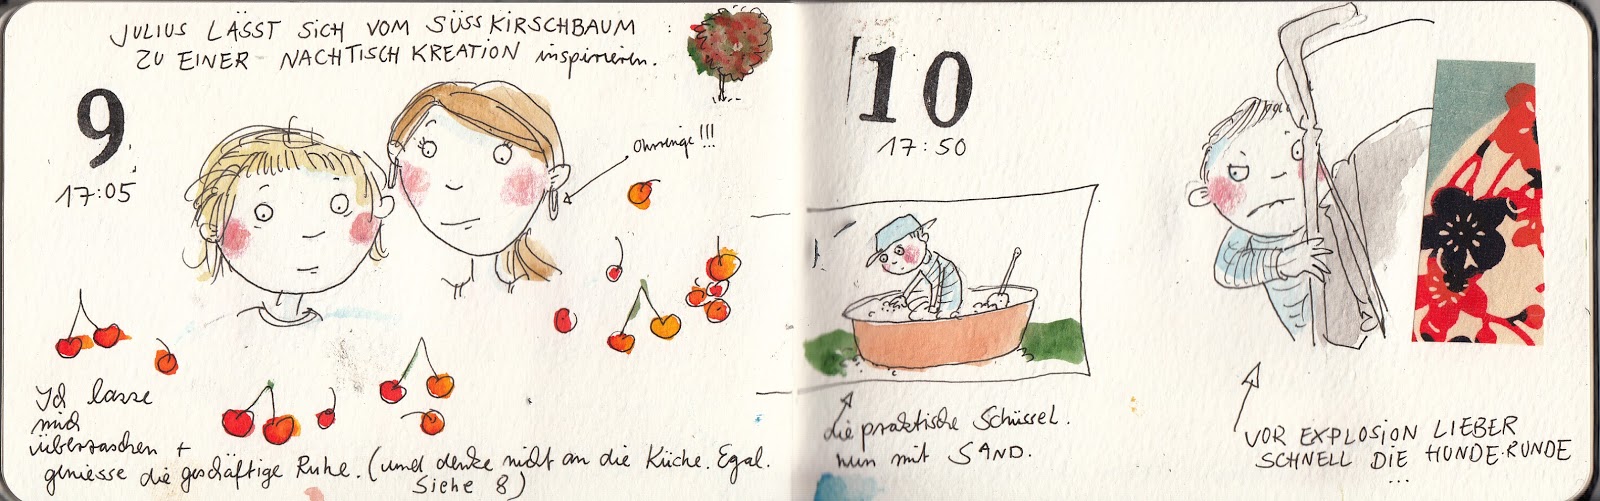 JULIUS LÄSST SICH VOM SÜSSKIRSCHBAUM :
ZU EINER NACHTISCHKREATION inspirieren.
9
17:05
Ohrringe!!!
Ich lasse
mich
überraschen +
geniesse die geschäftige Ruhe. (und denke nicht an die Küche. Egal.
Siehe 8)
10
17:50
die praktische Schüssel.
nun mit SAND.
VOR EXPLOSION LIEBER
SCHNELL DIE HUNDE-RUNDE
...